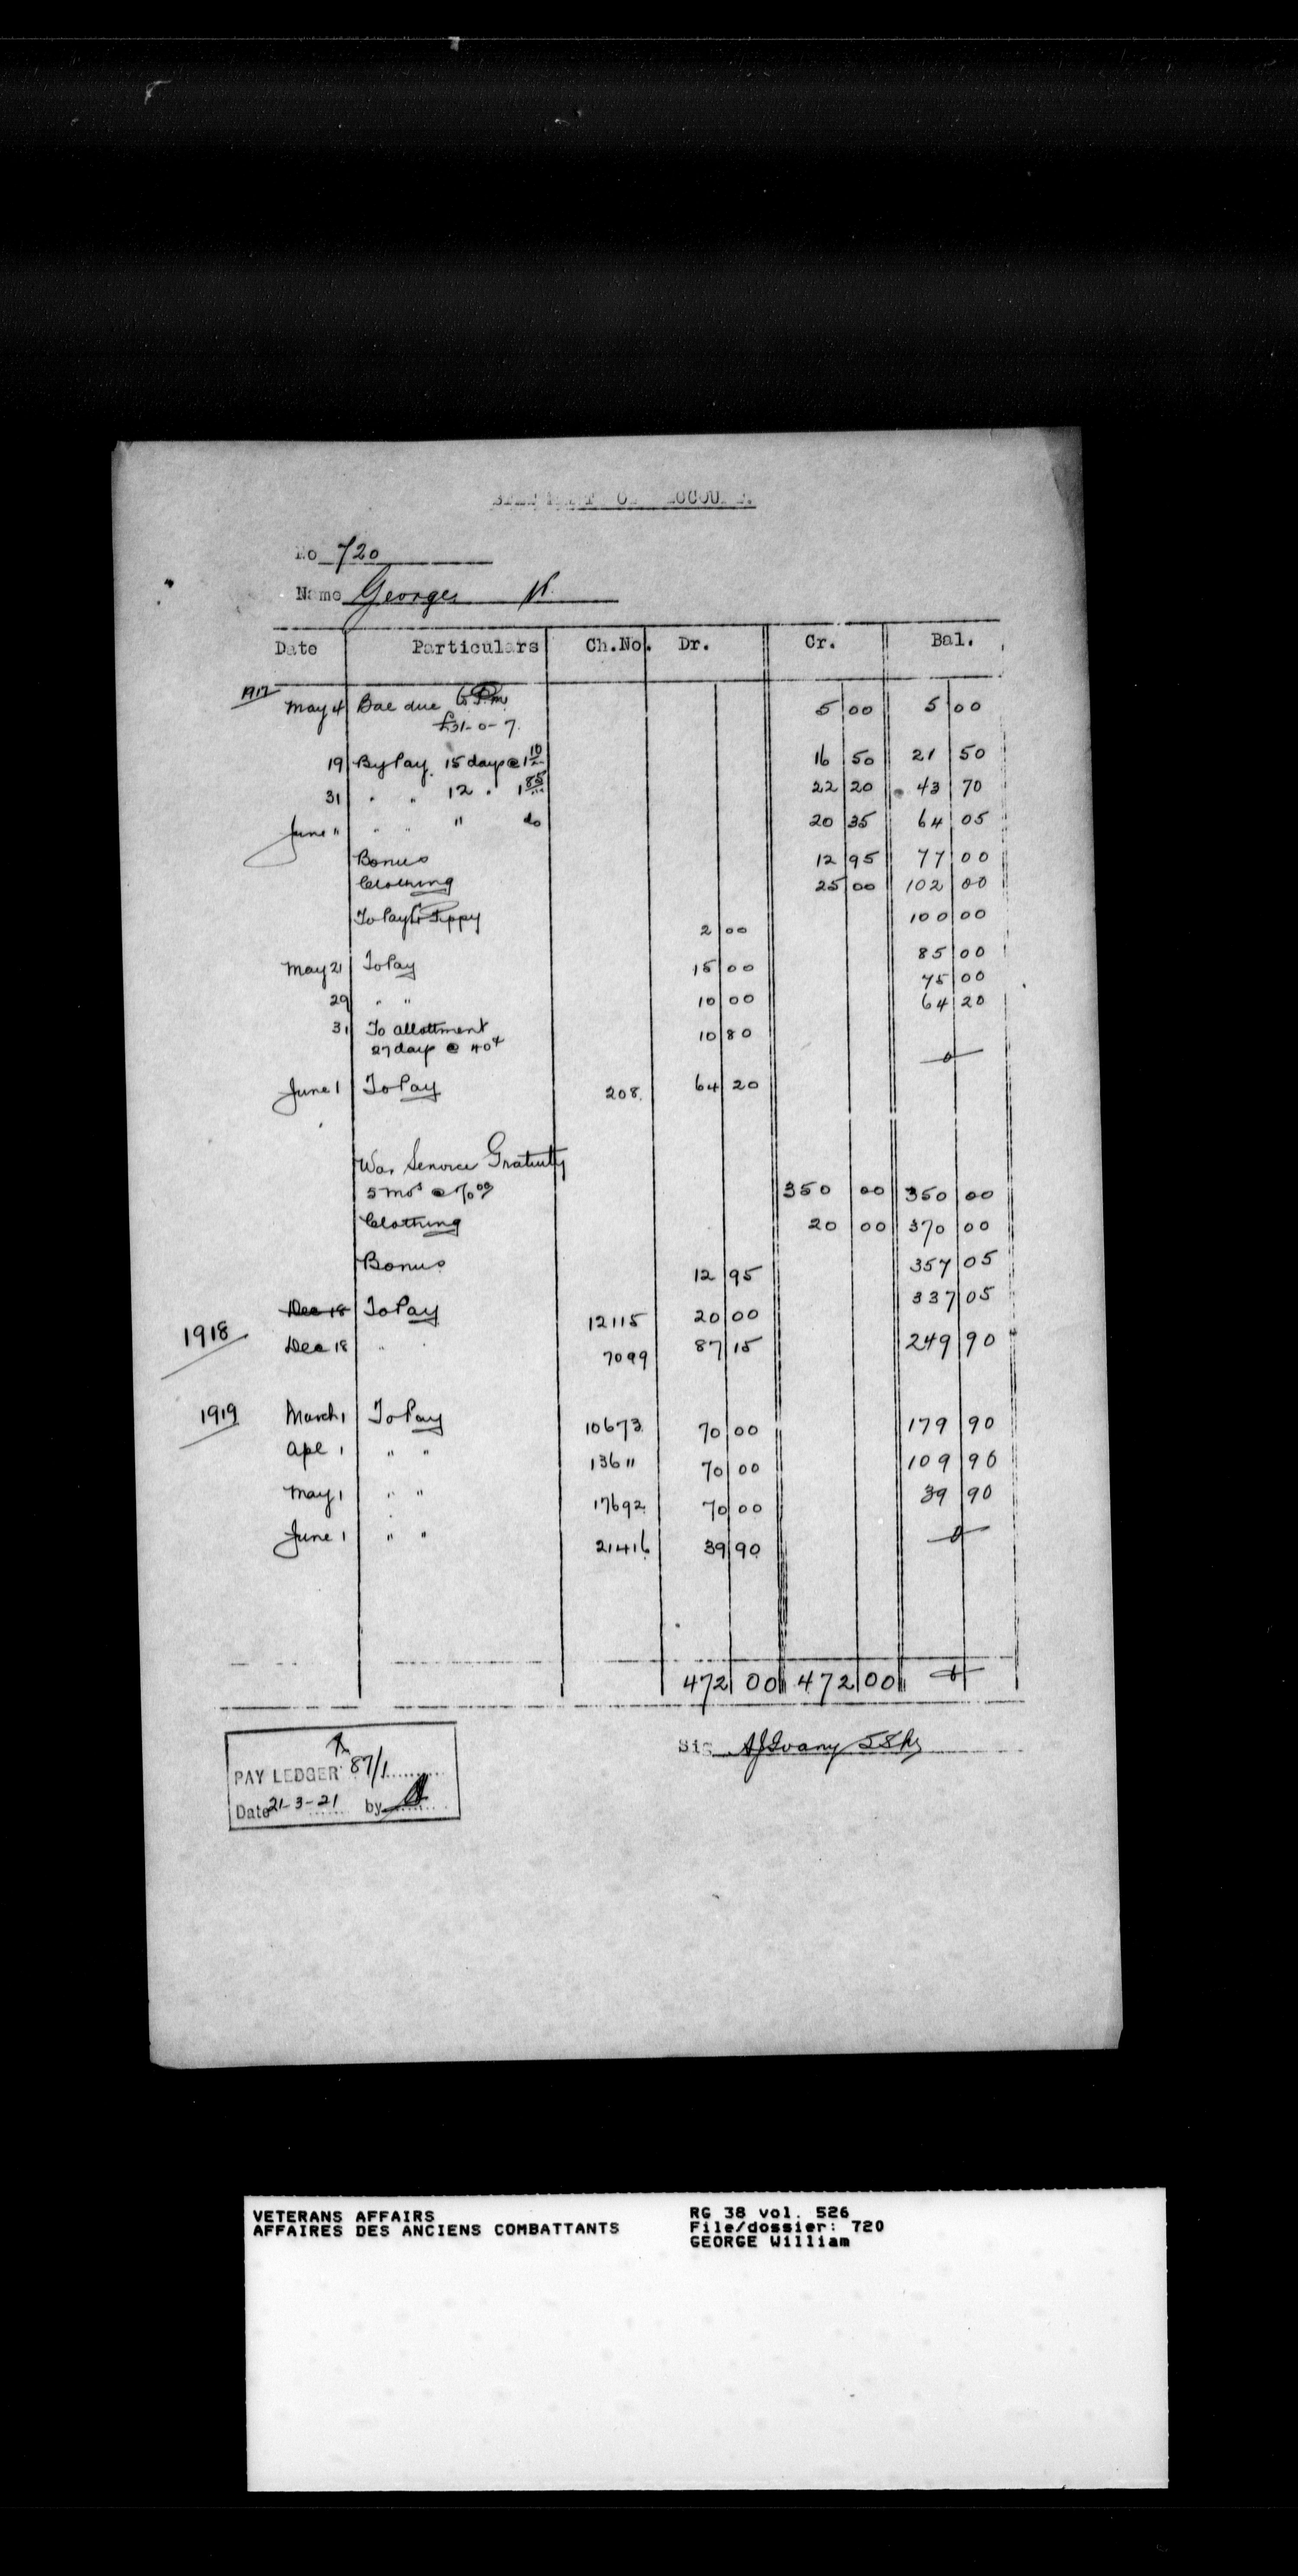 STATEMENT OF ACCOUNT.
No 720
Name Georges W.
Date Particulars Ch.No. Dr. Cr. Bal.
1917 May 4 Bal due 5 00 5 00
£31-0-7
19 By Pay 15 days @ 1 10 16 50 21 50
31 " " 12 " 1 85 22 20 43 70
June " " " " do 20 35 64 05
Bonus 12 95 77 00
Clothing 25 00 102 00
To Pay 2 00 100 00
May 21 To Pay 15 00 85 00
29 " " 10 00 75 00
31 To allottment 10 80 64 20
27 days @ 40¢
June 1 To Pay 208 64 20 0
War Service Gratuity
5 mos @ 70 00 350 00 350 00
Clothing 20 00 370 00
Bonus 12 95 357 05
Dec 18 To Pay 12115 20 00 337 05
1918 Dec 18 " " 7099 87 15 249 90
1919 March 1 To Pay 10673 70 00 179 90
Apl 1 " " 13611 70 00 109 90
May 1 " " 17692 70 00 39 90
June 1 " " 21416 39 90 0
472 00 472 00 0
Sig
PAY LEDGER 87/1
Date 21-3-21 by
VETERANS AFFAIRS
AFFAIRES DES ANCIENS COMBATTANTS
RG 38 vol. 526
File/dossier: 720
GEORGE William